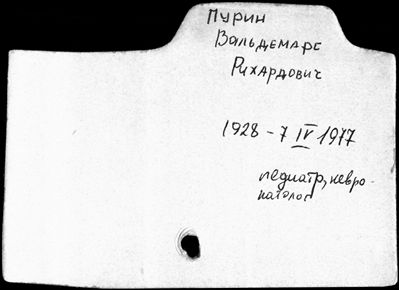 Пурин
Вальдемарс
Рихардович
1928 - 7 IV 1977
педиатр, невро-
патолог